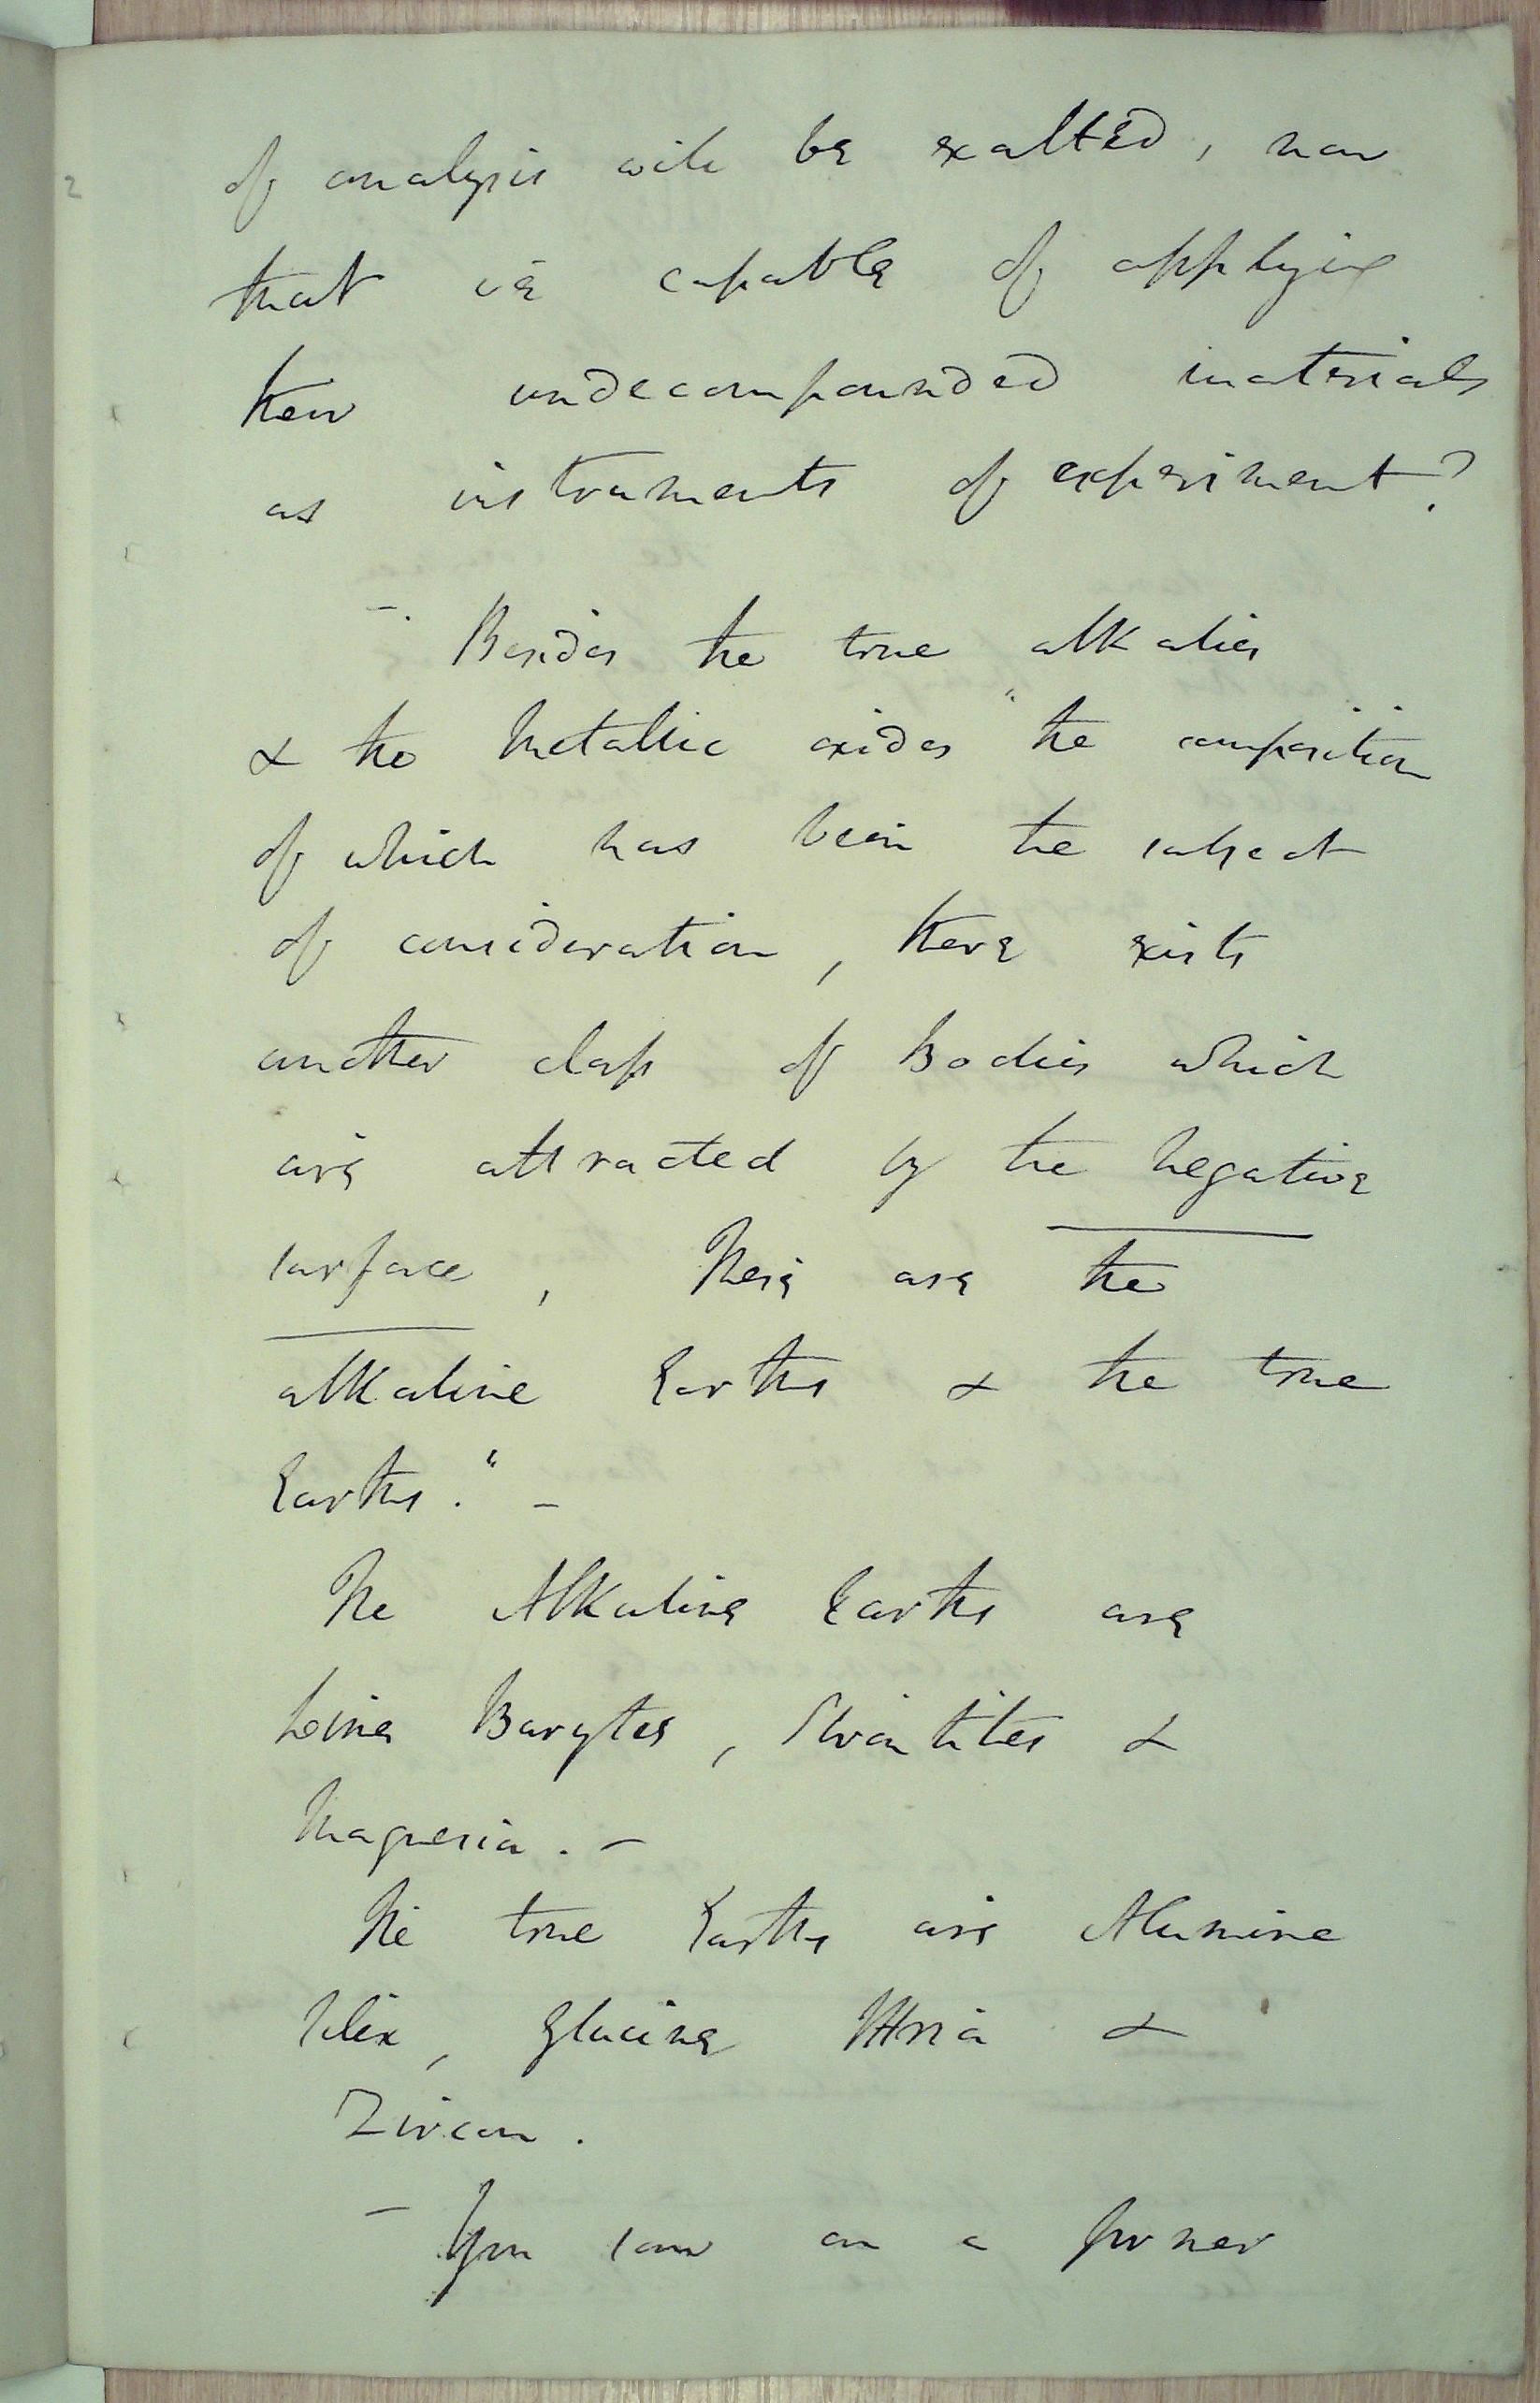 of analysis will be exalted, now
that is capable of applying
these undecompounded materials
as instruments of experiment?
—. Besides the true alkalies
& the Metallic oxides " the composition
of which has been the subject
of consideration, there exists
another class of Bodies which
are attracted by the negative
surface, These are the
alkaline Earths & the true
Earths." —
The Alkaline Earths are
Lime Barytes, Strontites &
Magnesia. —
The true Earths are Alumine
Silex, Glucine Yttria &
Zircon.
— You saw on a former
2